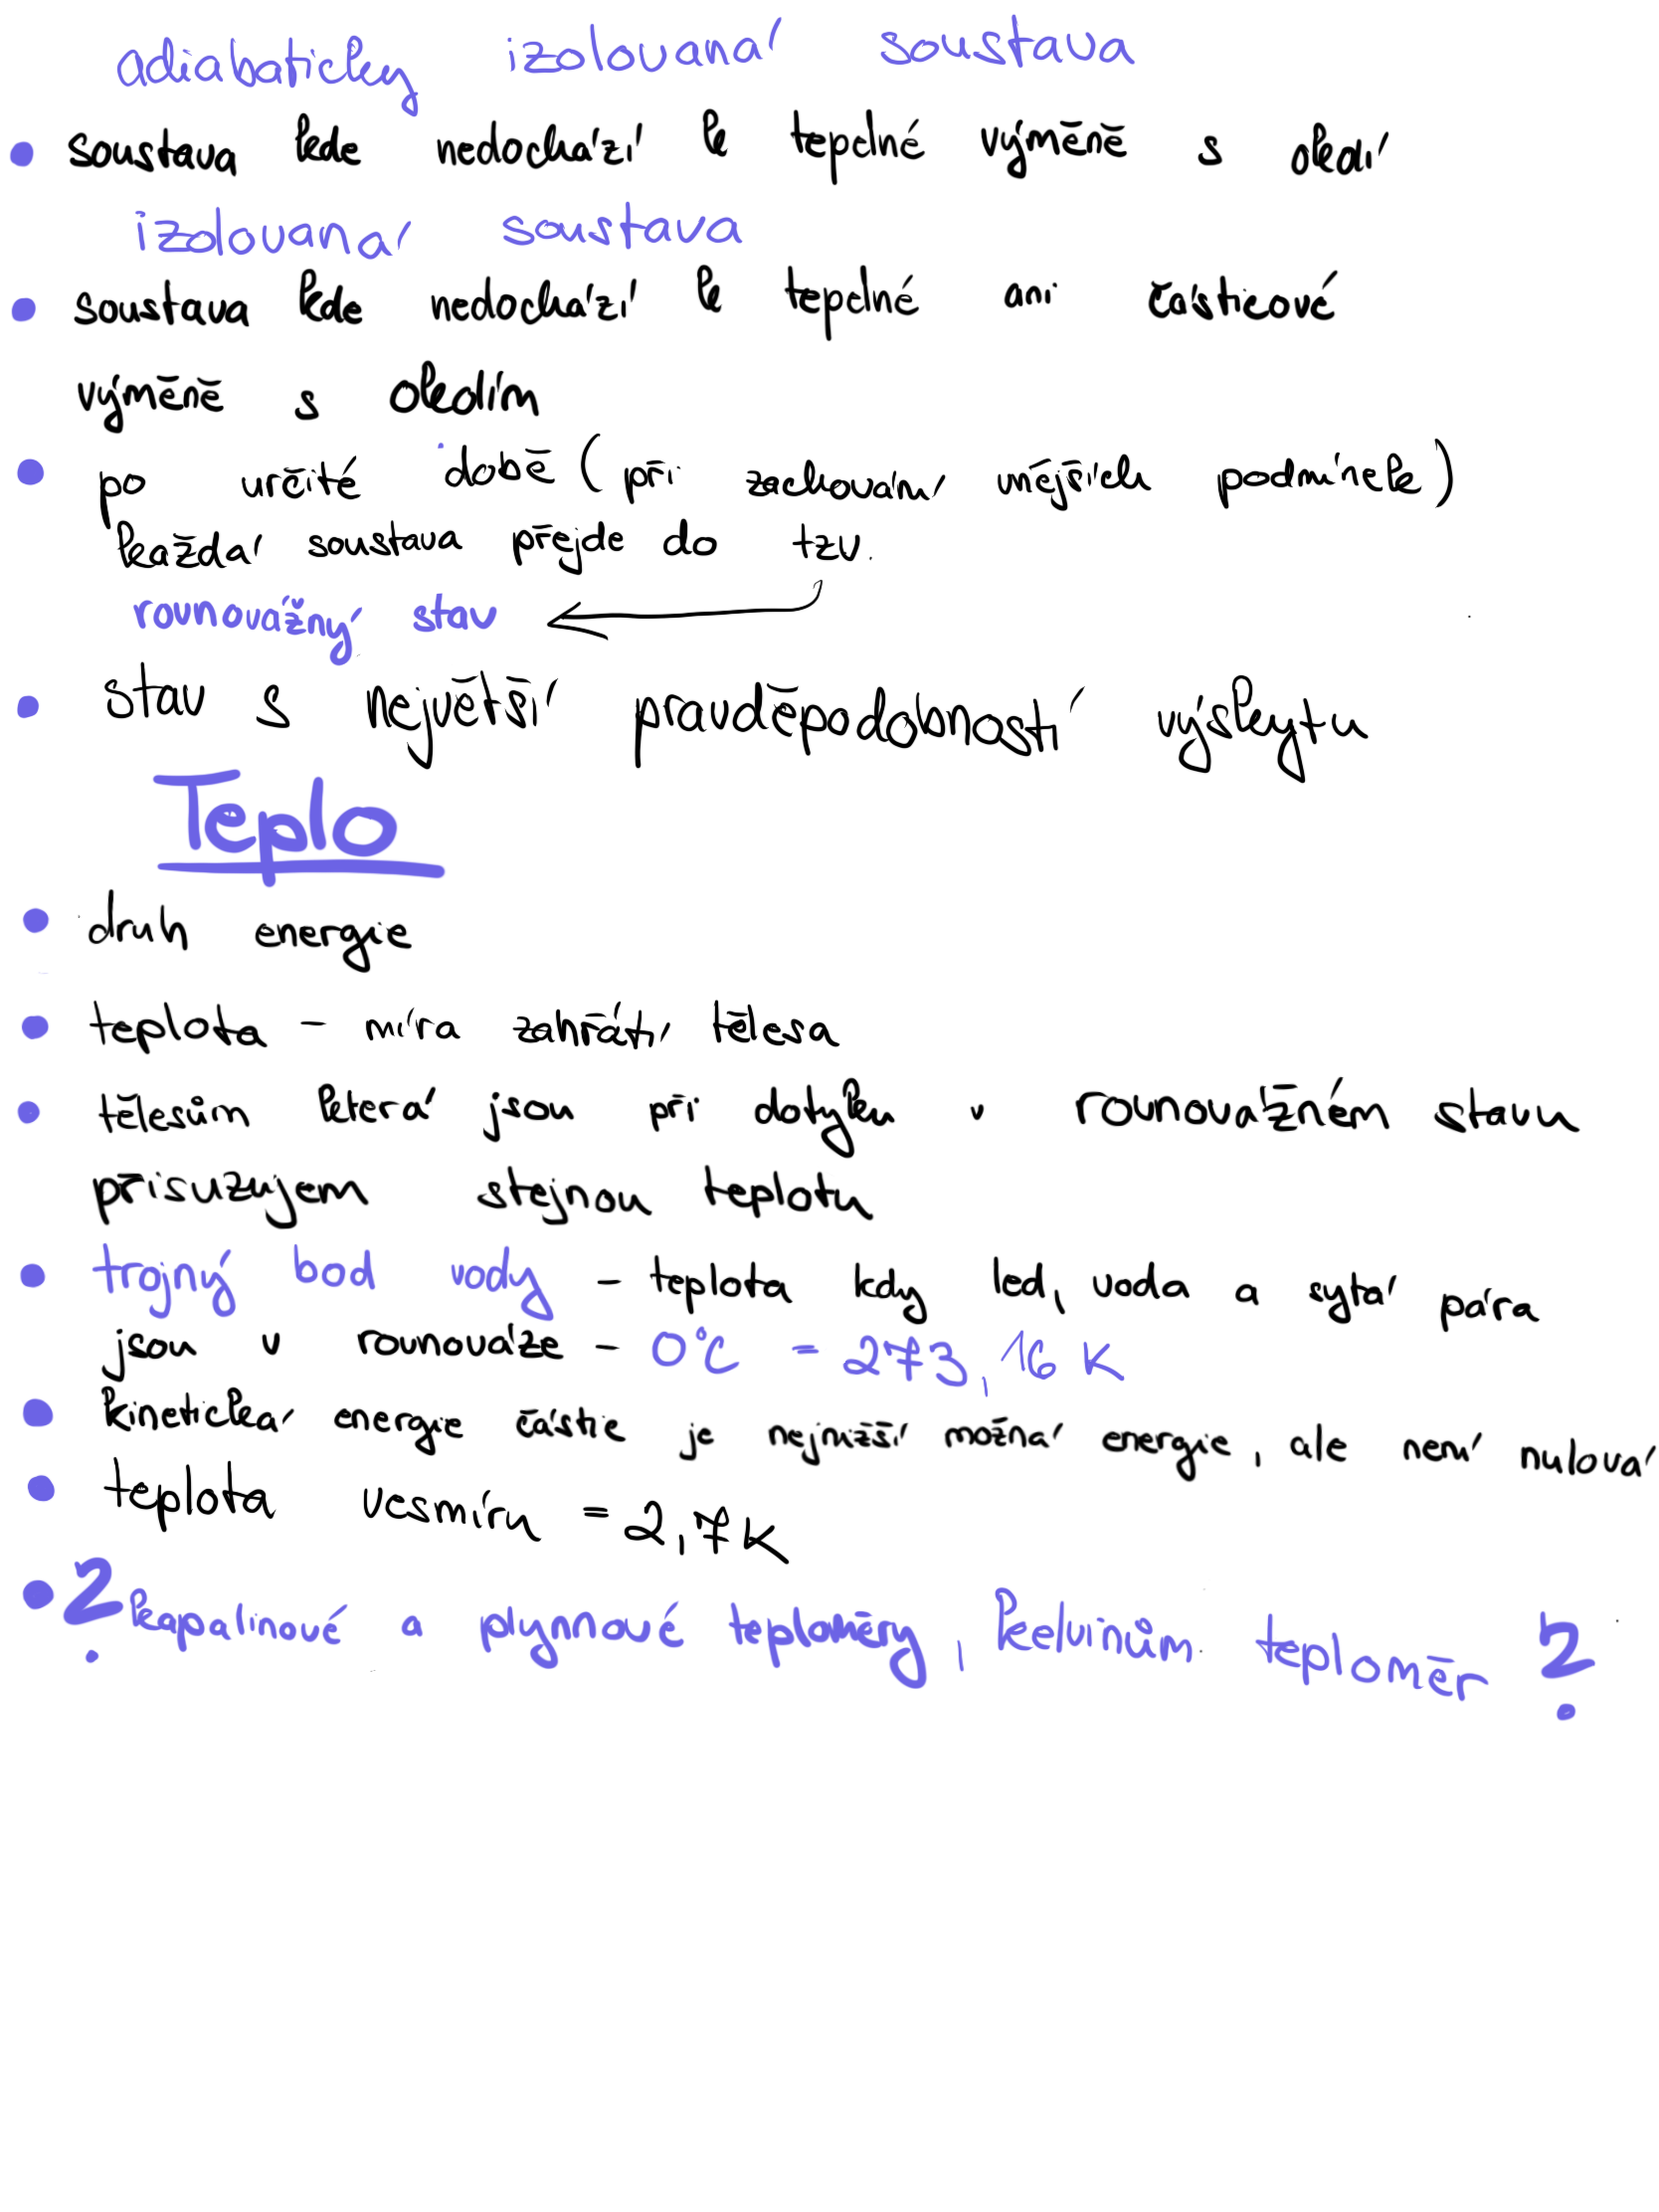 adiabaticky izolovaná soustava
• soustava kde nedochází k tepelné výměně s okolí
izolovaná soustava
• soustava kde nedochází k tepelné ani částicové
výměně s okolím
• po určité době (při zachování vnějších podmínek)
každá soustava přejde do tzv.
rovnovážný stav
• stav s největší pravděpodobností výskytu
Teplo
• druh energie
• teplota - míra zahřátí tělesa
• tělesům která jsou při dotyku v rovnovážném stavu
přisuzujem stejnou teplotu
• trojný bod vody - teplota kdy led, voda a sytá pára
jsou v rovnováze - 0°C = 273,16 K
• kinetická energie částic je nejnižší možná energie, ale není nulová
• teplota vesmíru = 2,7K
• ? kapalinové a plynnové teploměry, kelvinům teploměr ?